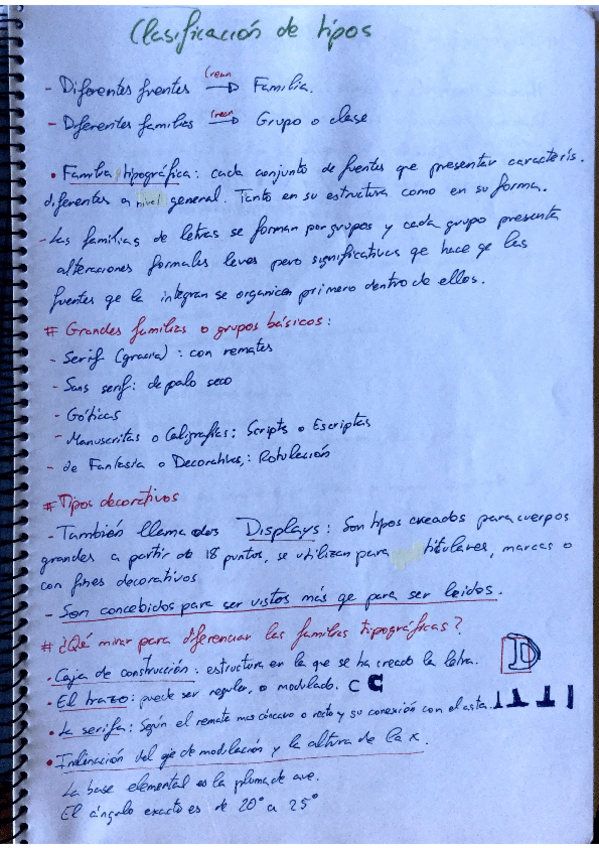 Clasificación de tipos
- Diferentes fuentes Crean → Familia.
- Diferentes familias Crean → Grupo o clase
• Familia tipográfica: cada conjunto de fuentes que presentan caracterís.
diferentes a nivel general. Tanto en su estructura como en su forma.
- Las familias de letras se forman por grupos y cada grupo presenta
alteraciones formales leves pero significativas qe hace qe las
fuentes qe la integran se organicen primero dentro de ellos.
# Grandes familias o grupos básicos:
- Serif (gracia): con remates
- Sans serif: de palo seco
- Góticas
- Manuscritas o Caligrafías: Scripts o Escriptas
- de Fantasía o Decorativas,: Rotulación
# Tipos decorativos
- También llamados Displays: Son tipos creados para cuerpos
grandes a partir de 18 puntos, se utilizan para titulares, marcas o
con fines decorativos
- Son concebidos para ser vistos más qe para ser leidos.
# ¿Qué mirar para diferenciar las familias tipográficas?
• Caja de construcción: estructura en la que se ha creado la letra. D
• El trazo: puede ser regular, o modulado. C C
• La serifa: Según el remate mas cóncavo o recto y su conexión con el asta.
• Inclinación del eje de modulación y la altura de la x.
La base elemental es la pluma de ave.
El ángulo exacto es de 20° a 25°